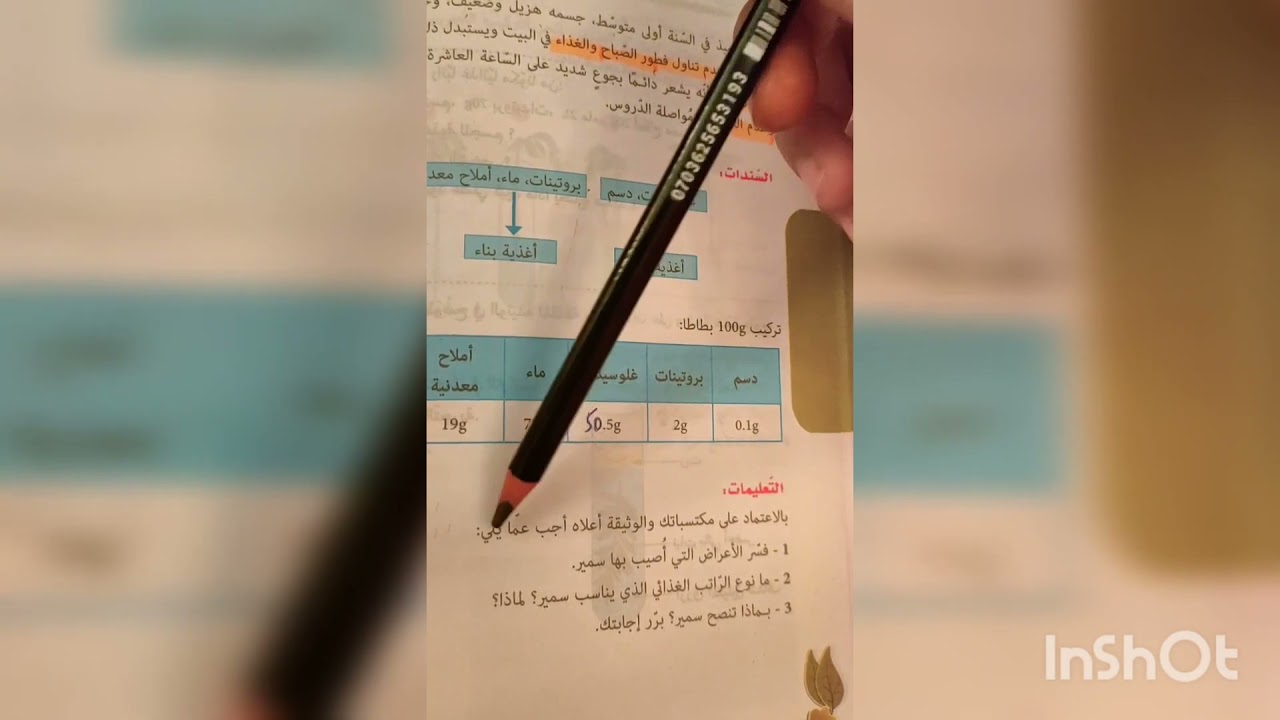 في السّنة أولى متوسّط، جسمه هزيل وضعيف،
تناول فطور الصّباح والغذاء في البيت ويستبدل
يشعر دائمًا بجوع شديد على السّاعة العاشرة
مُواصلة الدّروس.
السّندات:
دسم
بروتينات، ماء، أملاح
أغذية بناء
تركيب 100g بطاطا:
دسم
بروتينات
ماء
أملاح معدنية
0.1g
2g
50.5g
19g
التّعليمات:
بالاعتماد على مكتسباتك والوثيقة أعلاه أجب عمّا يلي:
1 - فسّر الأعراض التي أُصيب بها سمير.
2 - ما نوع الرّاتب الغذائي الذي يناسب سمير؟ لماذا؟
3 - بـماذا تنصح سمير؟ برّر إجابتك.
0703625653193
InShOt